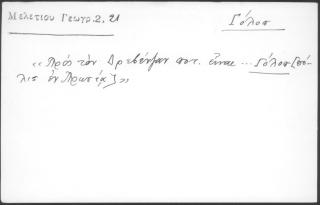 Μελετίου Γεωγρ. 2, 21
Γόλοσ
«Πρὸς τὸν Δρεβένζαν ποτ. εἶναι ... Γόλοσ [πό-
λις ἐν